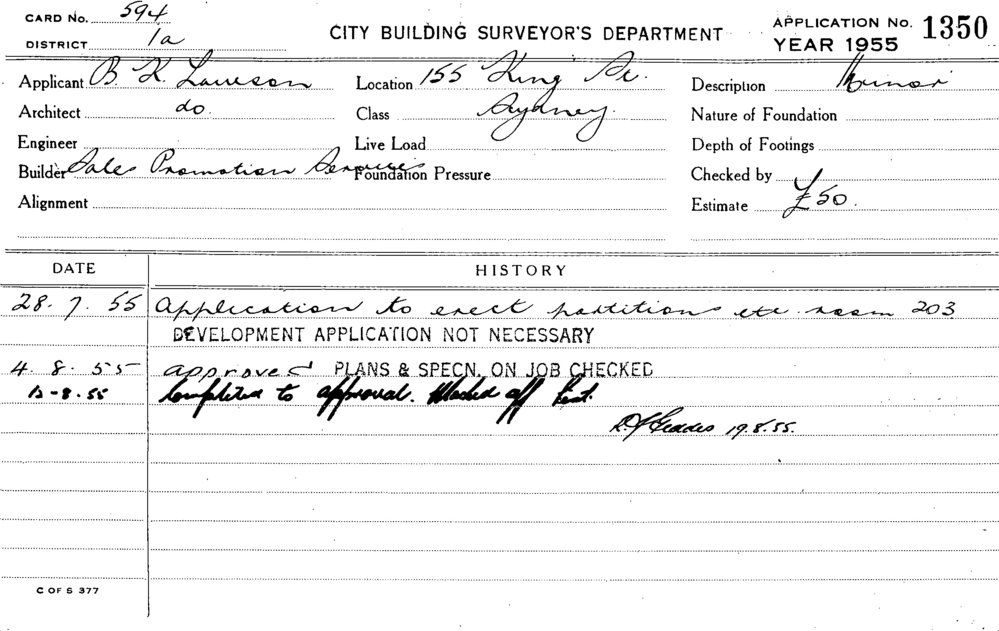 CARD No. 594
CITY BUILDING SURVEYOR'S DEPARTMENT
APPLICATION No. 1350
DISTRICT 1a
YEAR 1955
Applicant B. K. Lawson Location 155 King St. Description Minor
Architect do. Class Sydney Nature of Foundation
Engineer Live Load Depth of Footings
Builder Sales Promotion Services Foundation Pressure Checked by
Alignment Estimate £50.
DATE HISTORY
28. 7. 55 Application to erect partitions etc. room 203
DEVELOPMENT APPLICATION NOT NECESSARY
4. 8. 55 approved PLANS & SPECN. ON JOB CHECKED
-8.55 Completed to approval. off
19.8.55.
C OF S 377